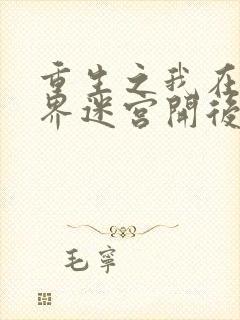 重生之我在
界迷宮開後
毛寧